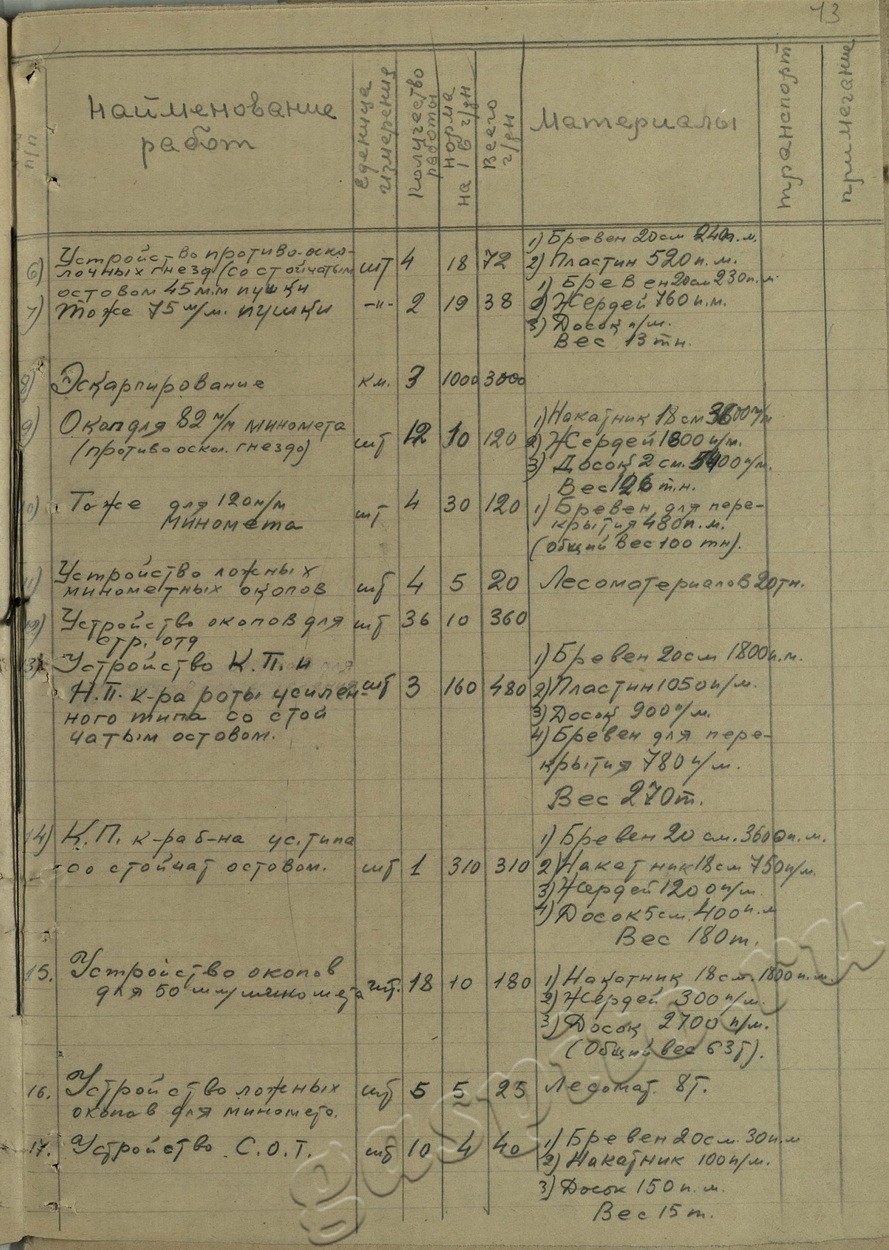 13
п/п
Найменование
работ
Еденица
измерения
Количество
работы
норма
на 1 Б ч/дн
Всего
ч/дн
Материалы
транспорт
примечание
6) Устройство противо-оско- шт 4 18 72 1) Бревен 20см 240п.м.
лочных гнезд (со стойчатым 2) Пластин 520п.м.
остовом 45 м.м пушки 1) Бревен 20см 230п.м
7) Тоже 75 м/м. пушки -"- 2 19 38 2) Жердей 760 п.м.
3) Досок п/м.
Вес 13 тн.
8) Эскарпирование км. 3 1000 3000
9) Окоп для 82 м/м миномета шт 12 10 120 1) Накатник 18 см 3600 п/м
(противооскол. гнездо) 2) Жердей 1800 п/м.
3) Досок 2 см. 5400 п/м.
Вес 126 т.н.
10) Тоже для 120 м/м шт 4 30 120 1) Бревен для пере-
миномета крытия 480п.м.
(общий вес 100 тн).
11) Устройство ложных
минометных окопов шт 4 5 20 Лесоматериалов 20тн.
12) Устройство окопов для шт 36 10 360
стр. отд
13) Устройство К.П. и 1) Бревен 20см 1800п.м.
Н.П. к-ра роты усилен- шт 3 160 480 2) Пластин 1050 п/м.
ного типа со стой 3) Досок 900 п/м.
чатым остовом. 4) Бревен для пере-
крытия 780 п/м.
Вес 270т.
14) К.П. к-ра б-на ус. типа 1) Бревен 20 см. 3600п.м.
со стойчат остовом. шт 1 310 310 2) Накатник 18см 750п/м.
3) Жердей 1200 п/м.
4) Досок 5 см. 400 п.м
Вес 180т.
15. Устройство окопов
для 50 мм/миномета шт. 18 10 180 1) Накотник 18см. 1800 п.м.
2) Жердей 300 п/м.
3) Досок 2700 п/м.
(Общий вес 63т).
16. Устройство ложных шт 5 5 25 Лесомат. 8т.
окопов для миномето.
17. Устройство С.О.Т. шт 10 4 40 1) Бревен 20см 30п.м
2) Накатник 100 п/м.
3) Досок 150 п.м.
Вес 15 т.